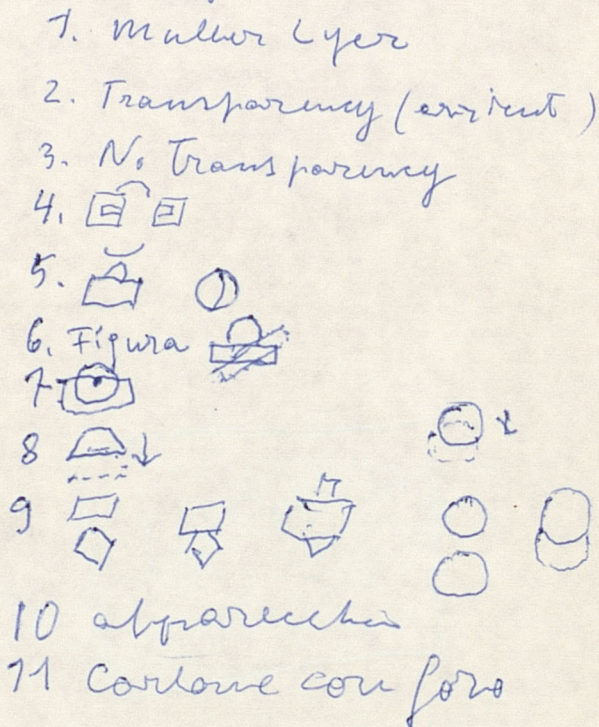 1. Muller Lyer
2. Transparency (        )
3. No Transparency
4.
5.
6. Figura
7
8
9
10 apparecchio
11 Cartone con foro